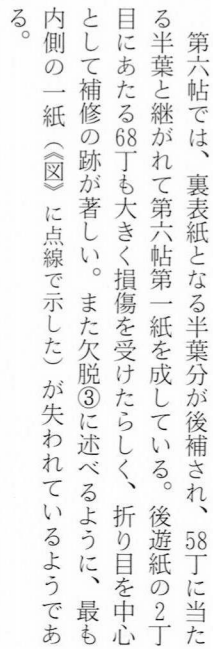 第六帖では、裏表紙となる半葉分が後補され、58丁に当た
る半葉と継がれて第六帖第一紙を成している。後遊紙の2丁
目にあたる68丁も大きく損傷を受けたらしく、折り目を中心
として補修の跡が著しい。また欠脱③に述べるように、最も
内側の一紙（《図》に点線で示した）が失われているようであ
る。